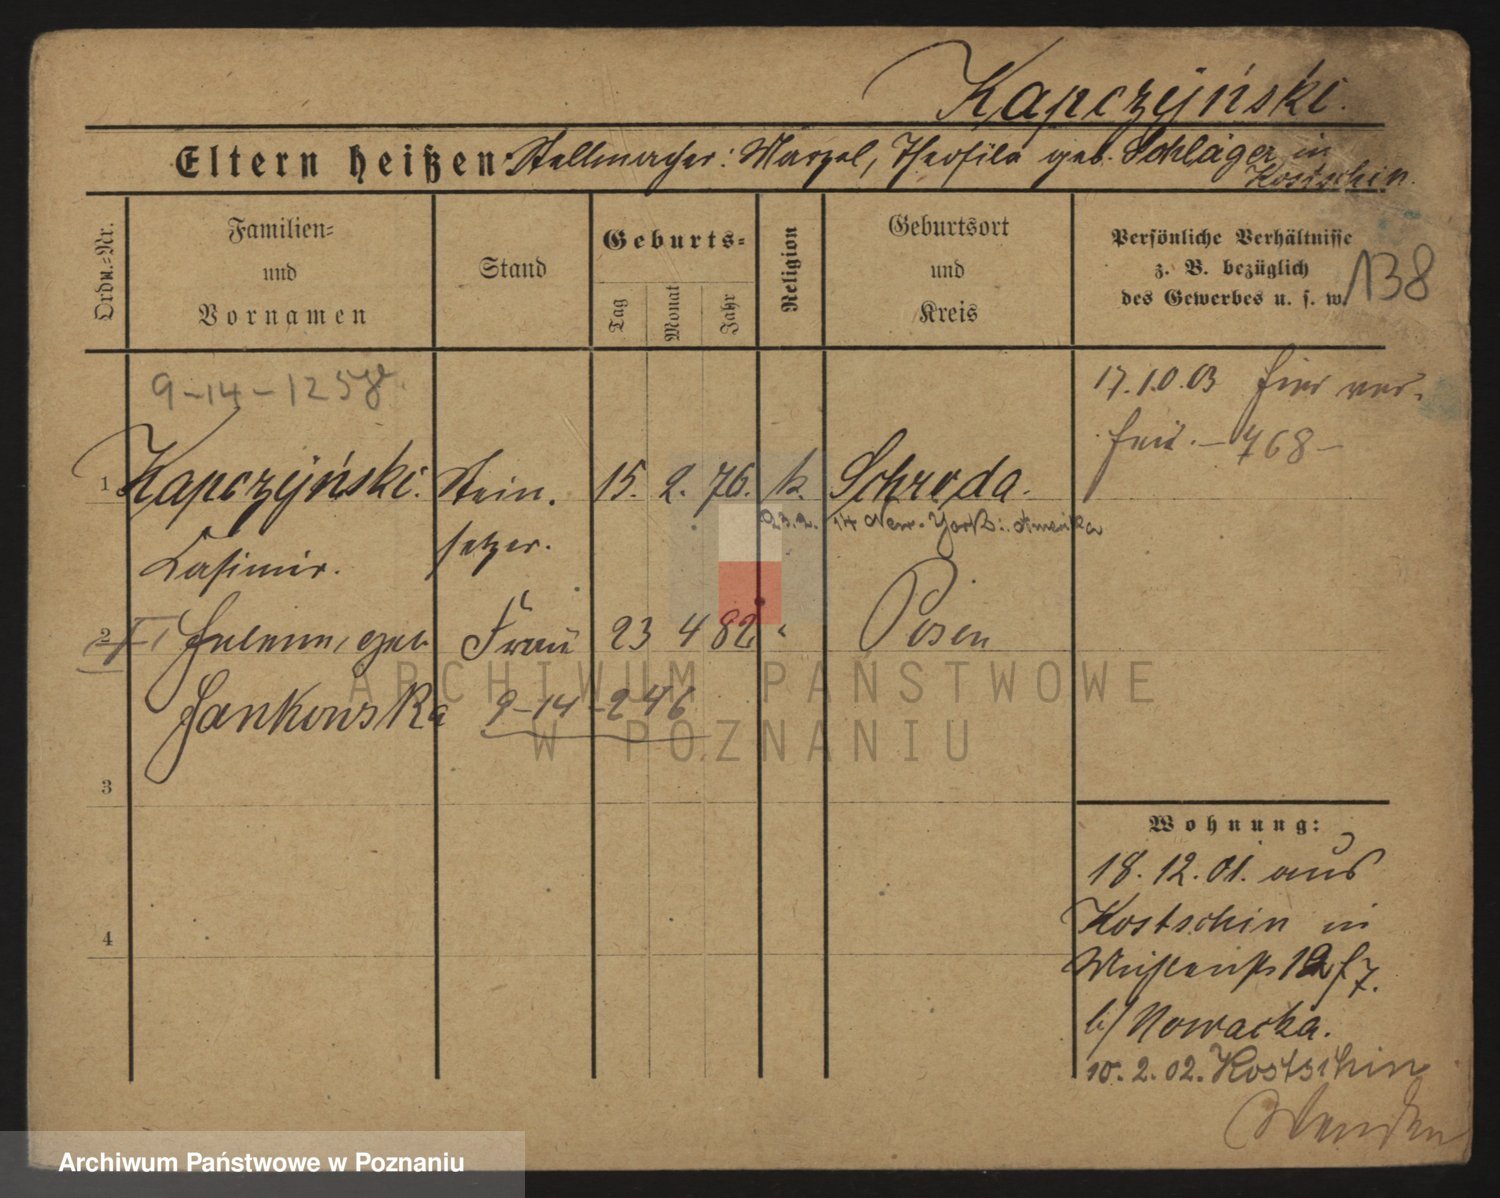 Kapczyński.
Eltern heißen: Stellmacher: Marzel, Theofila geb. Schläger in
Kostschin.
Ordn.-Nr.
Familien-
und
Vornamen
Stand
Geburts-
Tag
Monat
Jahr
Religion
Geburtsort
und
Kreis
Persönliche Verhältnisse
z. B. bezüglich
des Gewerbes u. s. w.
138
9-14-1258
17.10.03 hier ver-
heir. - 768 -
1 Kapczyński. Stein- 15. 2. 76. k. Schroda.
23.2. 14 New-York: Amerika
Casimir. setzer.
2 Helene, geb. Frau 23 4 82 " Posen
Jankowska 9-14-246
3
4
Wohnung:
18.12.01. aus
Kostschin in
7.
b/ Nowacka.
10.2.02. Kostschin
Wenden
ARCHIWUM PAŃSTWOWE
W POZNANIU
Archiwum Państwowe w Poznaniu